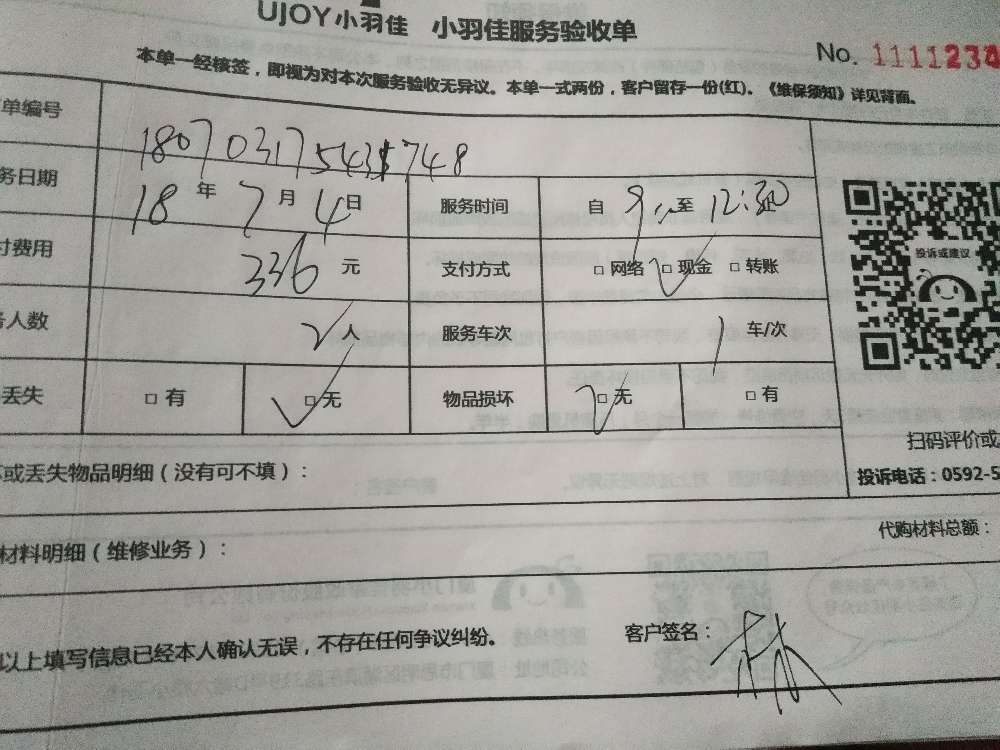 UJOY小羽佳 小羽佳服务验收单
No. 1111230
本单一经核签，即视为对本次服务验收无异议。本单一式两份，客户留存一份(红)。《维保须知》详见背面。
单编号 180703175438748
务日期 18 年 7 月 4 日 服务时间 自 9 至 12:30
付费用 336 元 支付方式 □ 网络 □ 现金 □ 转账
务人数 2人 服务车次 1 车/次
丢失 □ 有 □ 无 物品损坏 □ 无 □ 有
投诉或建议
扫码评价或
投诉电话：0592-5
或丢失物品明细（没有可不填）：
代购材料总额：
材料明细（维修业务）：
以上填写信息已经本人确认无误，不存在任何争议纠纷。 客户签名：